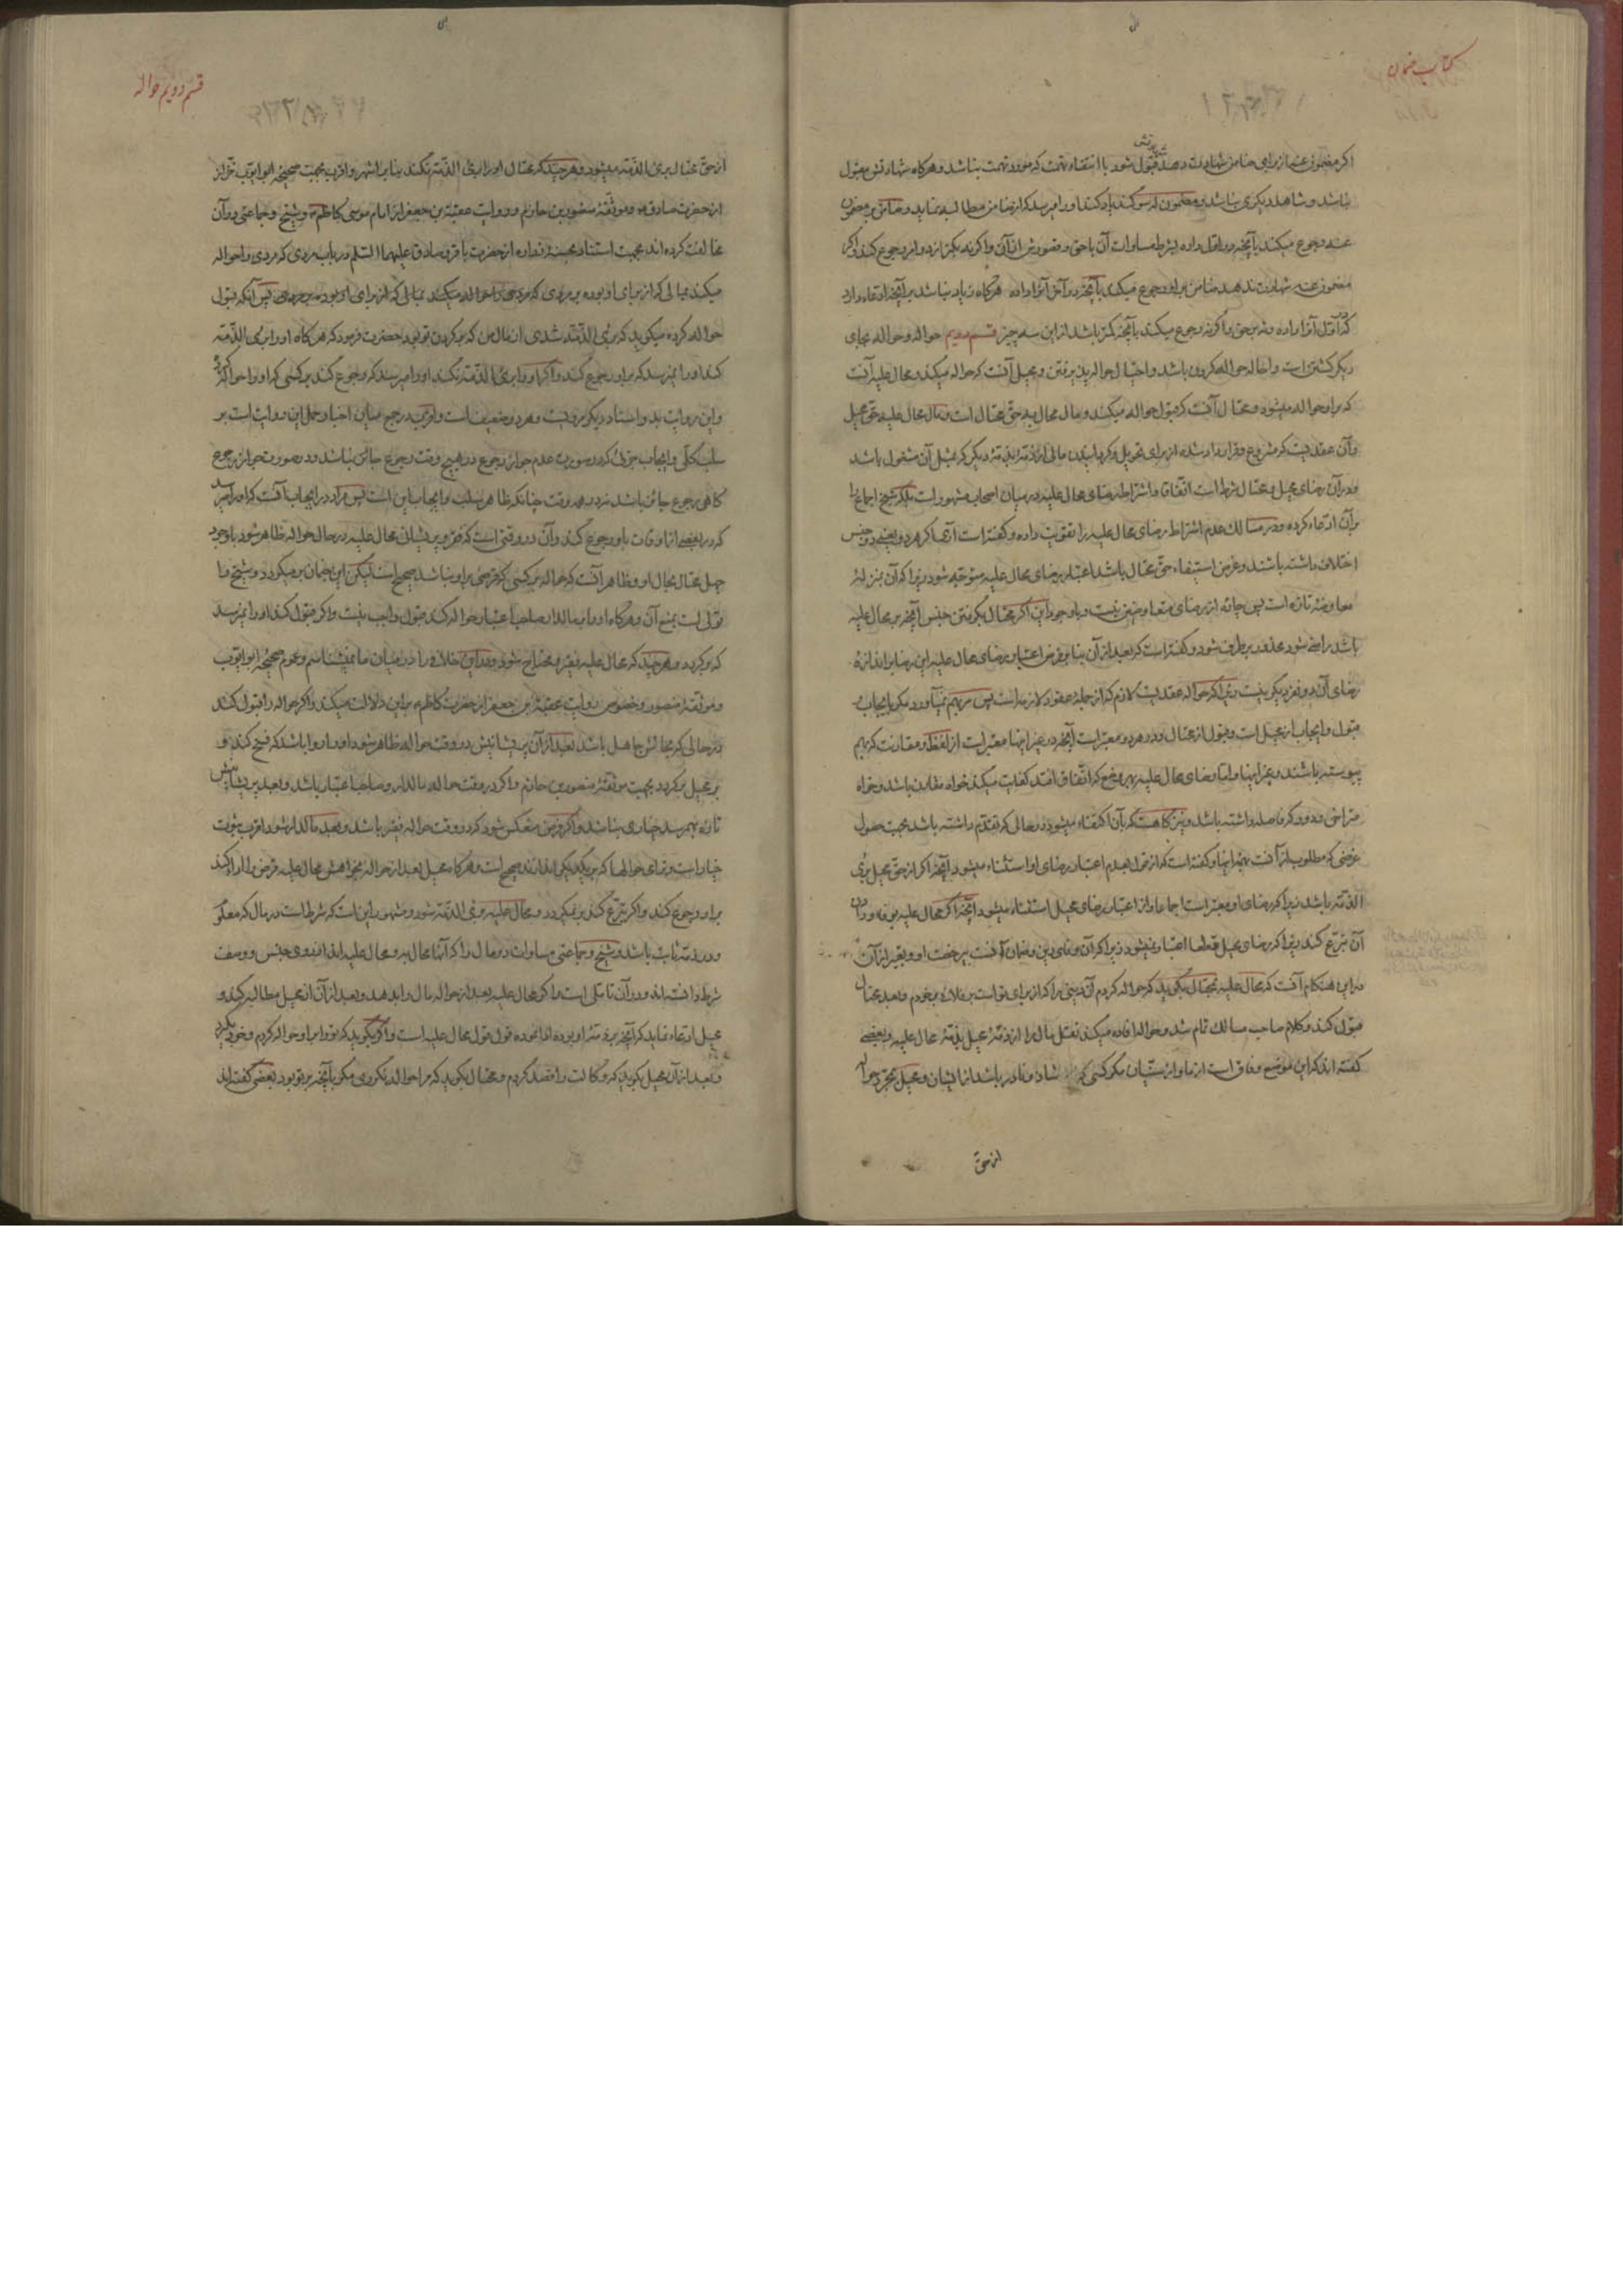 کتاب ضمان
اکر مضمون عنه از برای ضامن شهادت دهد قبول شود با انتفاء تهمت که مورد تهمت نباشد و هرکاه شهادتش مقبول
نباشد و شاهد دیکری نباشد و مضمون له سوکند یاد کند او را میرسد که از ضامن مطالبه نماید و ضامن بر مضمون
عنه رجوع میکند بآنچه در اول داده بشرط مساوات آن با حق و قصورش از آن و اکرنه بکمتر از دو امر رجوع کند و اکر
مضمون عنه شهادت ندهد ضامن بر او رجوع میکند بآنچه در آخر آنرا داده هرکاه زیاد نباشد بر آنچه ادعاء دارد
که در اول آنرا داده و نه بر حق و اکرنه رجوع میکند بآنچه کمتر باشد از این سه چیز قسم دویم حواله و حواله بجای
دیکر کشتن است و احاله حواله کردن باشد و احتیال حواله پذیرفتن و محیل آنست که حواله میکند و محال علیه آنست
که بر او حواله میشود و محتال آنست که قبول حواله میکند و مال محال به حق محتال است و مال محال علیه حق محیل
و آن عقدیست که مشروع و قرارداد شده از برای تحویل و کردانیدن مالی از ذمتی بذمتی دیکر که بمثل آن مشغول باشد
و در آن رضای محیل و محتال شرط است اتفاقا و اشتراط رضای محال علیه در میان اصحاب مشهور است بلکه شیخ اجماع را
بر آن ادعاء کرده و در مسالک عدم اشتراط رضای محال علیه را تقویت داده و کفته است آری اکر هر دو بعضی در جنس
اختلاف داشته باشند و غرض استیفاء حق محتال باشد اعتبار رضای محال علیه متوجه شود زیرا که آن بمنزله
معاوضه تازه است پس چاره از رضای متعاوضین نیست و با وجود این اکر محتال بکرفتن جنس آنچه بر محال علیه
باشد راضی شود محذور بر طرف شود و کفته است که بعد از آن بنا بر فرض اعتبار رضای محال علیه این رضا بر اندازه
رضای آن دو نفر دیکر نیست زیرا که حواله عقدیست لازم که از جمله عقود لازمه است پس بهم نمیآورد مکر بایجاب و
قبول و ایجاب از محیل است و قبول از محتال و در هر دو معتبر است آنچه در غیر اینها معتبر است از لفظ و مقارنت که بهم
پیوسته باشند و غیر اینها و اما رضای محال علیه بهر وضع که اتفاق افتد کفایت میکند خواه مقارن باشد و خواه
متراخی و دور که فاصله داشته باشد و نیز کاهست که بآن اکتفاء میشود در حالی که تقدم داشته باشد بجهت حصول
غرضی که مطلوب از آنست بغیر اینها و کفته است که از قول بعدم اعتبار رضای او استثناء میشود آنچه اکر از حق محیل بری
الذمه باشد زیرا که رضای او معتبر است اجماعا و از اعتبار رضای محیل استثناء میشود آنچه اکر محال علیه بوفاء و دادن
آن تبرع کند زیرا که رضای محیل قطعا اعتبار نمیشود زیرا که آن وفای دین و ضمان آنست بی رخصت او و تعبیر از آن
در این هنکام آنست که محال علیه بمحتال بکوید که حواله کردم آن دینی را که از برای تو است بر فلان بر خودم و بعد محتال
قبول کند و کلام صاحب مسالک تمام شد و حواله افاده میکند نقل مال را از ذمه محیل بذمه محال علیه و بعضی
کفته اند که این موضع وفاق است از ما و از سنیان مکر کسی که شاد و نادر باشد از ایشان و محیل بمجرد حواله
از حق
قسم دویم حواله
از حق محتال بری الذمه میشود و هر چند که محتال او را بری الذمه نکند بنا بر اشهر و اقرب بجهت صحیحه ابو ایوب خزاز
از حضرت صادق ع و موثقه منصور بن حازم و روایت عقبة بن جعفر از امام موسی کاظم ع و شیخ و جماعتی در آن
مخالفت کرده اند بجهت استناد بحسنه زراره از حضرت باقر و صادق علیهما السلم در باب مردی که مردی را حواله
میکند بمالی که از برای او بوده بر مردی که مردی را حواله میکند بمالی که از برای او بوده بر مردی پس آنکه قبول
حواله کرده میکوید که بری الذمه شدی از مال من که بر کردن تو بود حضرت فرمود که هر کاه او را بری الذمه
کند او را نمیرسد که بر او رجوع کند و اکر او را بری الذمه نکند او را میرسد که رجوع کند بر کسی که او را حواله کرده
و این روایت بدو اسناد دیکر مرویست و هر دو ضعیف است و اقرب در جمع میان اخبار حمل این روایت است بر
سلب کلی و ایجاب جزئی که در صورت عدم جواز رجوع در هیچ وقت رجوع جائز نباشد و در صورت جواز رجوع
کاهی رجوع جائز باشد نه در همه وقت چنانکه ظاهر سلب و ایجاب این است پس مراد در ایجاب آنست که او را میرسد
که در بعضی از اوقات باو رجوع کند و آن در وقتی است که فقر و پریشانی محال علیه در حال حواله ظاهر شود با وجود
جهل محتال بحال او و ظاهر آنست که حواله بر کسی که قرضی بر او نباشد صحیح است لیکن این بضمان بر میکردد و شیخ را
قولی است بمنع آن و هرکاه او را بمالدار صاحب اعتبار حواله کند قبول واجب نیست و اکر قبول کند او را نمیرسد
که بر کردد و هر چند که محال علیه فقیر و محتاج شود و در این خلافی را در میان ما نمیشناسم و عموم صحیحه ابو ایوب
و موثقه منصور و خصوص روایت عقبة ابن جعفر از حضرت کاظم ع بر این دلالت میکند و اکر حواله را قبول کند
در حالی که بحالش جاهل باشد بعد از آن پریشانیش در وقت حواله ظاهر شود او را روا باشد که فسخ کند و
بر محیل بر کردد بجهت موثقه منصور بن حازم و اکر در وقت حواله مالدار و صاحب اعتبار باشد و بعد پریشانیش
تازه بهم رسد خیاری نباشد و اکر فرض منعکس شود که در وقت حواله فقیر باشد و بعد مالدار شود اقرب ثبوت
خیار است و ترامی حوالها که بر یکدیکر اندازند صحیح است و هرکاه محیل بعد از حواله بخواهش محال علیه قرض را اداء کند
بر او رجوع کند و اکر تبرع کند بر نمیکردد و محال علیه بری الذمه شود و مشهور این است که شرط است در مال که معلوم
و در ذمه ثابت باشد و شیخ و جماعتی مساوات دو مال را که آنها محال به و محال علیه اند از روی جنس و وصف
شرط دانسته اند و در آن تاملی است و اکر محال علیه بعد از حواله مال را بدهد و بعد از آن از محیل مطالبه کند و
محیل ادعاء نماید که آنچه بر ذمه او بوده اداء نموده قول قول محال علیه است و اکر بکوید که تو را بر او حواله کردم و خود بکیرد
و بعد از آن محیل بکوید که وکالت را قصد کردم و محتال بکوید که مرا حواله نکردی مکر بآنچه بر تو بود بعضی کفته اند